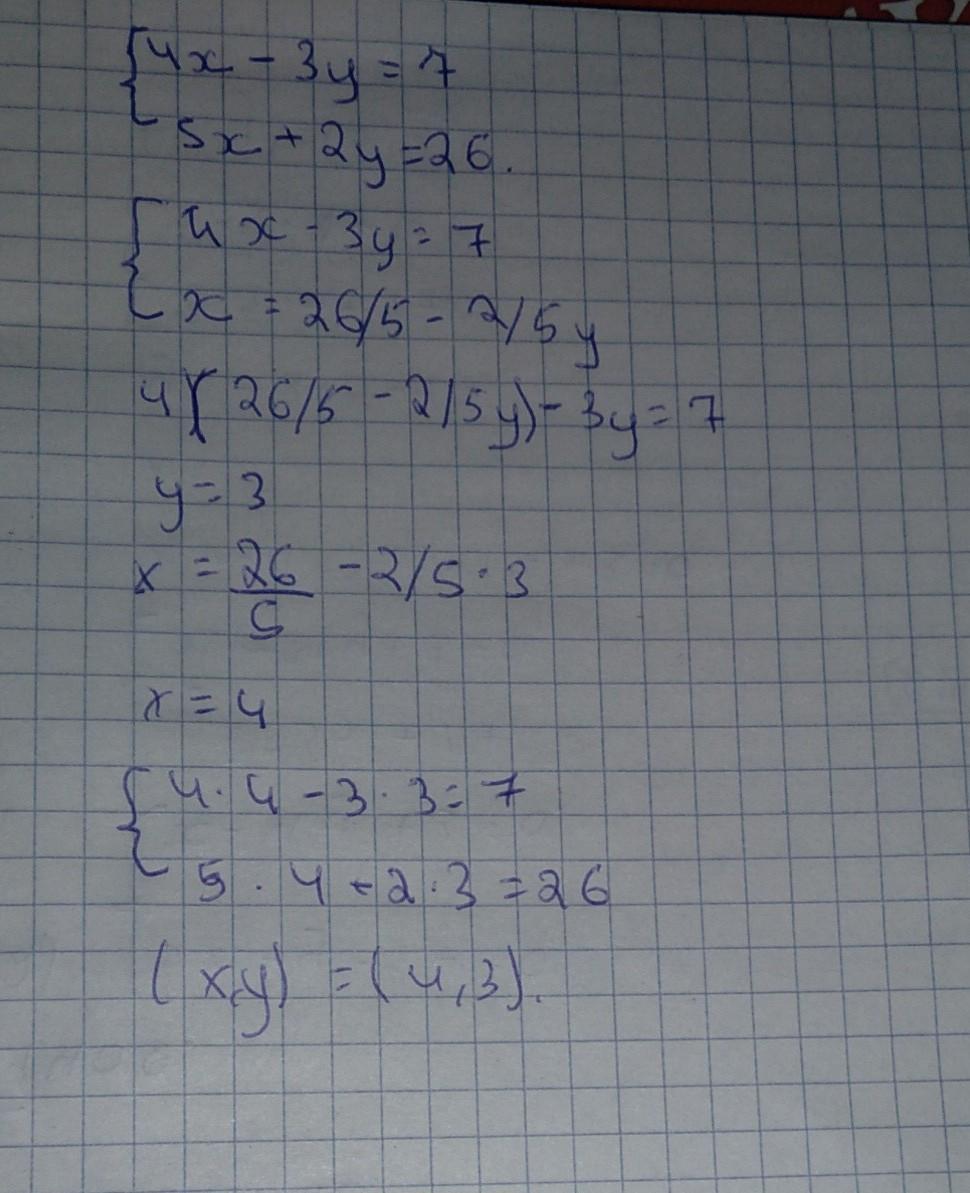 { 4x - 3y = 7
5x + 2y = 26.
{ 4x - 3y = 7
x = 26/5 - 2/5 y
4 ( 26/5 - 2/5 y) - 3y = 7
y = 3
x = 26/5 - 2/5 · 3
x = 4
{ 4 · 4 - 3 · 3 = 7
5 · 4 + 2 · 3 = 26
(x,y) = (4,3).